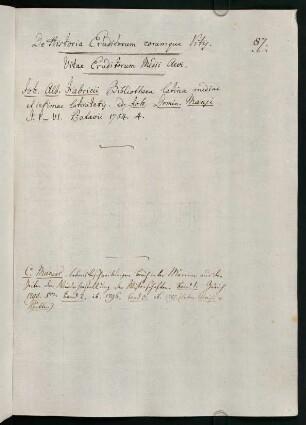 87.
De Historia Eruditorum eorumque Vitis.
Vitae Eruditorum Medii Aevi.
Joh. Alb. Fabricii Bibliotheca latina mediae
et infimae latinitatis. ed. Joh. Domin. Mansi
T. I – VI. Patavii 1754. 4.
C. Meiners Lebensbeschreibungen berühmter Männer aus den
Zeiten der Wiederherstellung der Wissenschaften. Band 1. Zürich
1795. Band 2. ib. 1796. Band 3. ib. 1797.